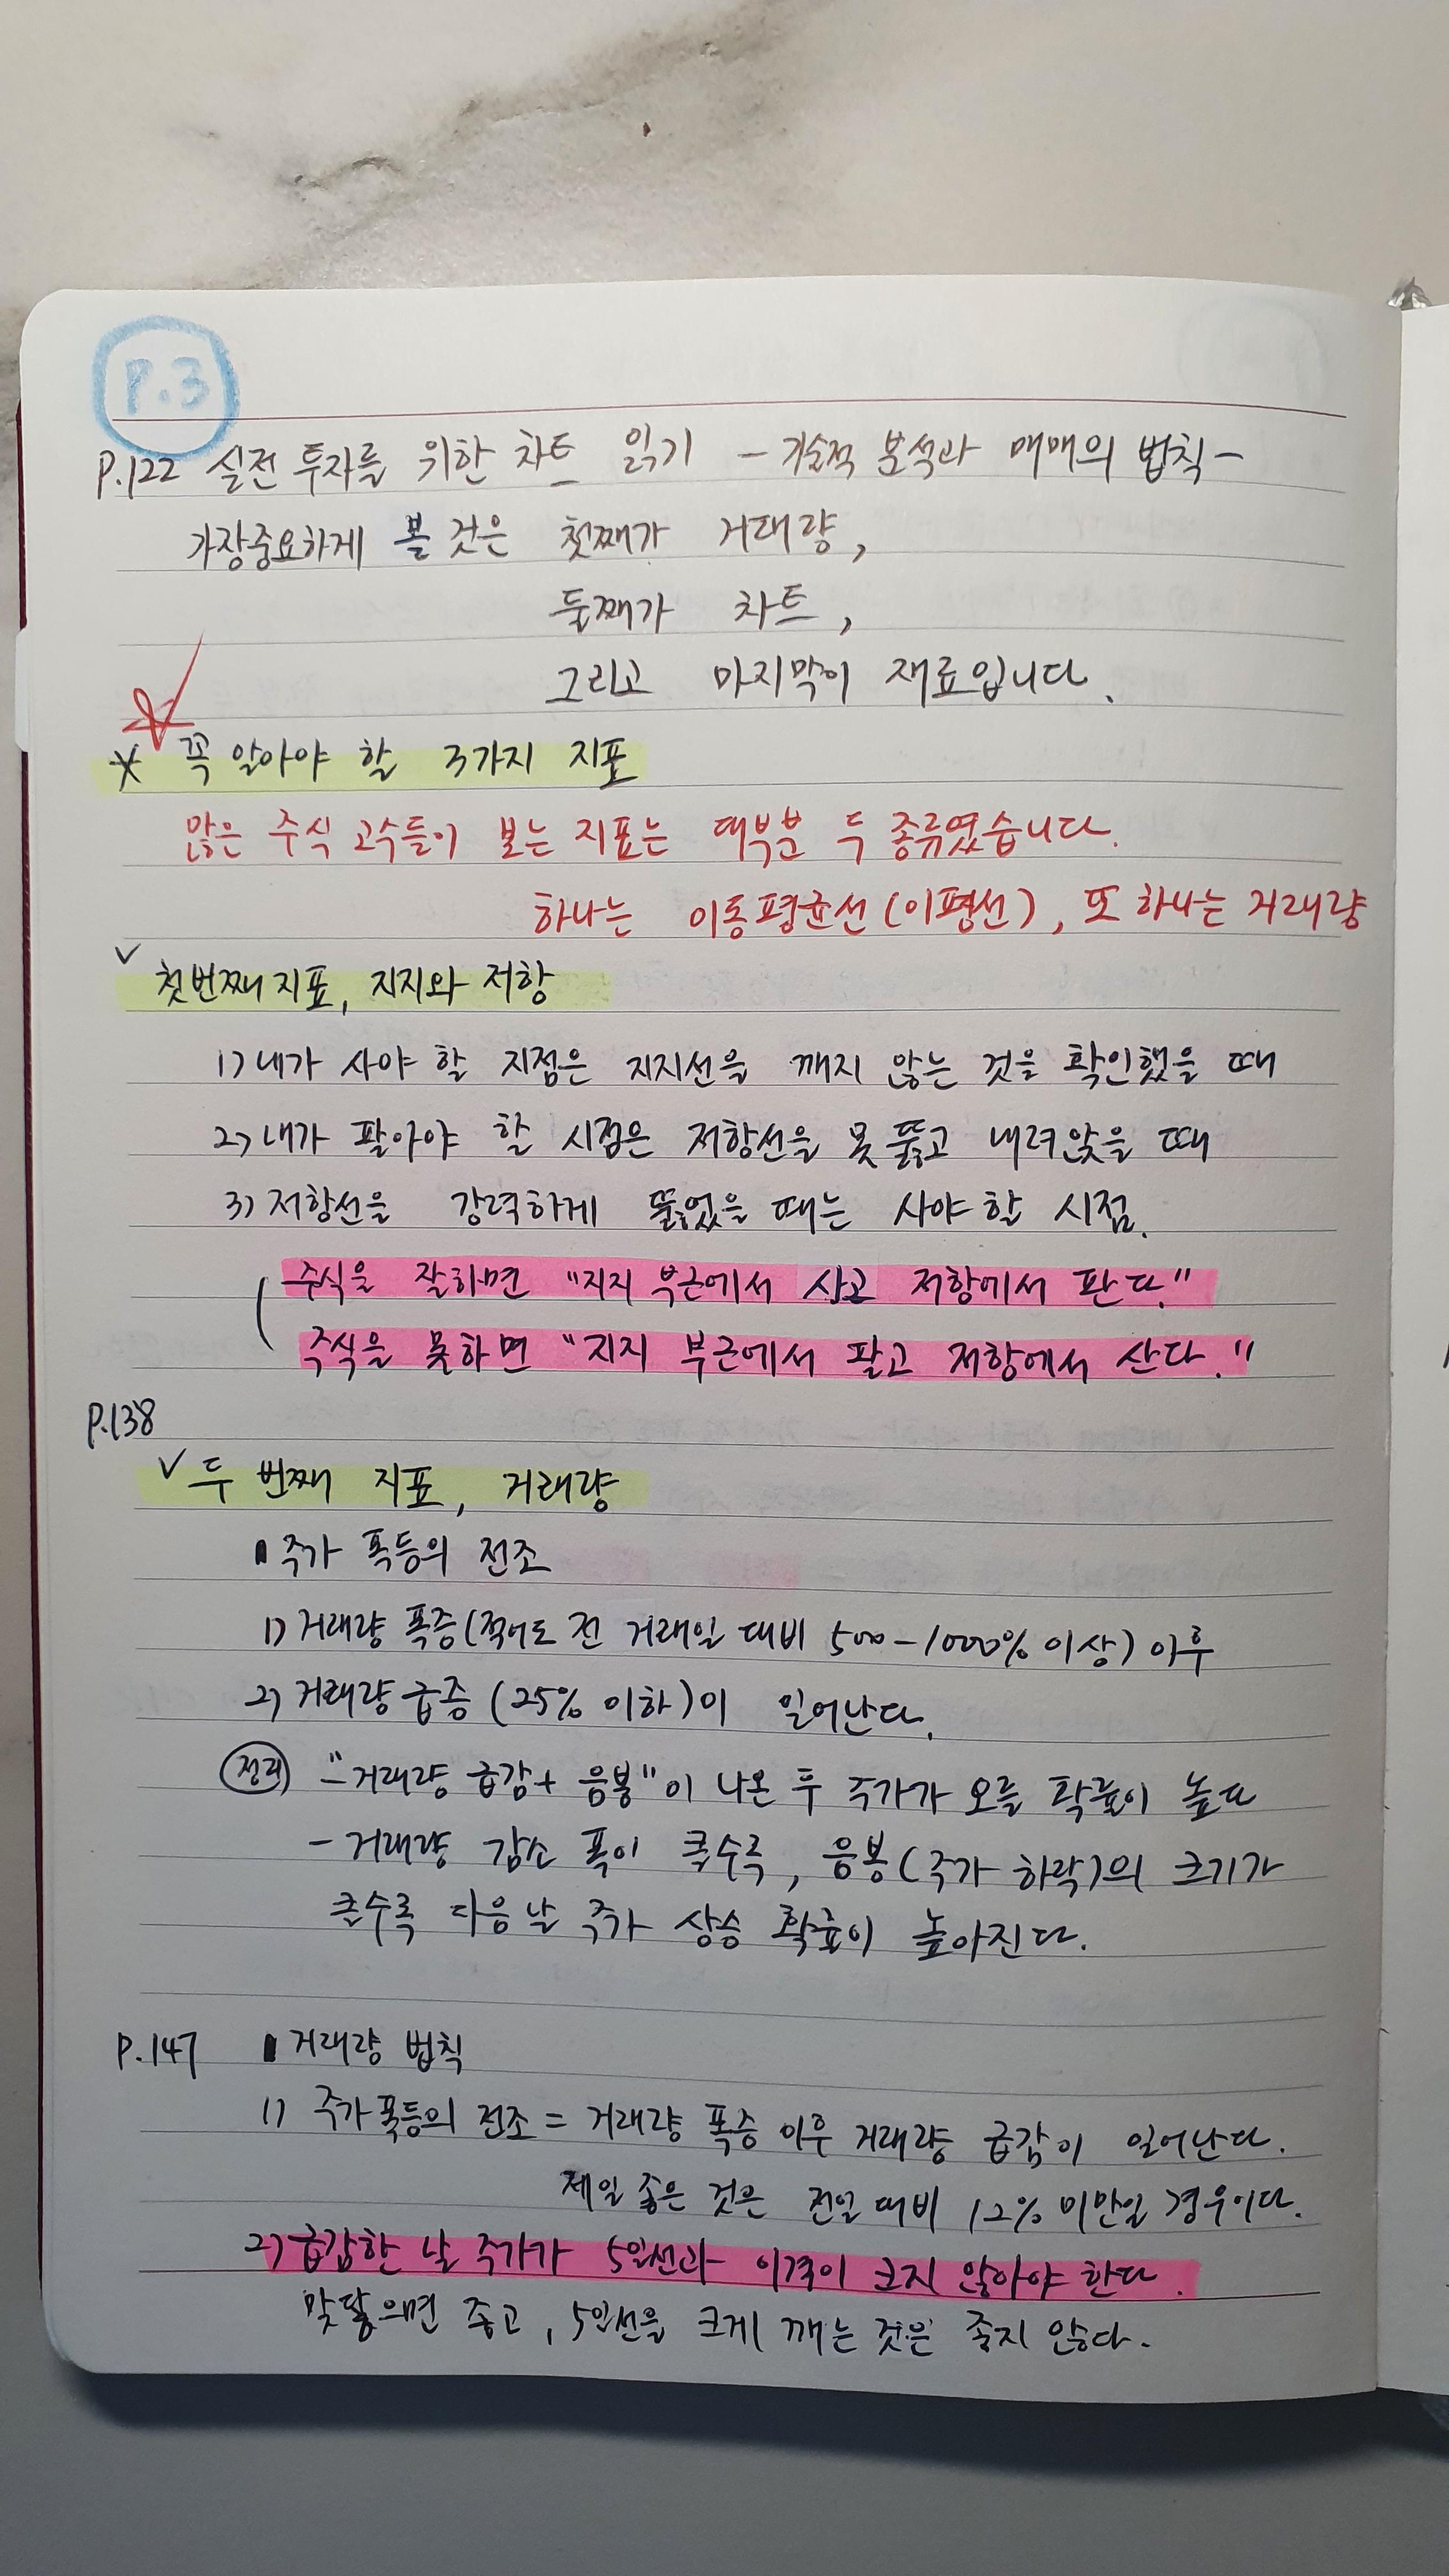 P.3
P.122 실전 투자를 위한 차트 읽기 - 기술적 분석과 매매의 법칙 -
가장중요하게 볼 것은 첫째가 거래량,
둘째가 차트,
그리고 마지막이 재료입니다.
* 꼭 알아야 할 3가지 지표
많은 주식 고수들이 보는 지표는 대부분 두 종류였습니다.
하나는 이동평균선(이평선), 또 하나는 거래량
✓ 첫번째 지표, 지지와 저항
1) 내가 사야 할 지점은 지지선을 깨지 않는 것을 확인했을 때
2) 내가 팔아야 할 시점은 저항선을 못 뚫고 내려앉을 때
3) 저항선을 강력하게 뚫었을 때는 사야 할 시점.
주식을 잘하면 "지지 부근에서 사고 저항에서 판다."
주식을 못하면 "지지 부근에서 팔고 저항에서 산다."
P.138
✓ 두 번째 지표, 거래량
▮ 주가 폭등의 전조
1) 거래량 폭증(적어도 전 거래일 대비 500-1000% 이상) 이후
2) 거래량 급증 (25% 이하)이 일어난다.
정리 - "거래량 급감 + 음봉"이 나온 후 주가가 오를 확률이 높다
- 거래량 감소 폭이 클수록, 음봉(주가 하락)의 크기가
클수록 다음날 주가 상승 확률이 높아진다.
P.147 ▮ 거래량 법칙
1) 주가폭등의 전조 = 거래량 폭증 이후 거래량 급감이 일어난다.
제일 좋은 것은 전일 대비 12% 미만일 경우이다.
2) 급감한 날 주가가 5일선과 이격이 크지 않아야 한다.
맞닿으면 좋고, 5일선을 크게 깨는 것은 좋지 않다.